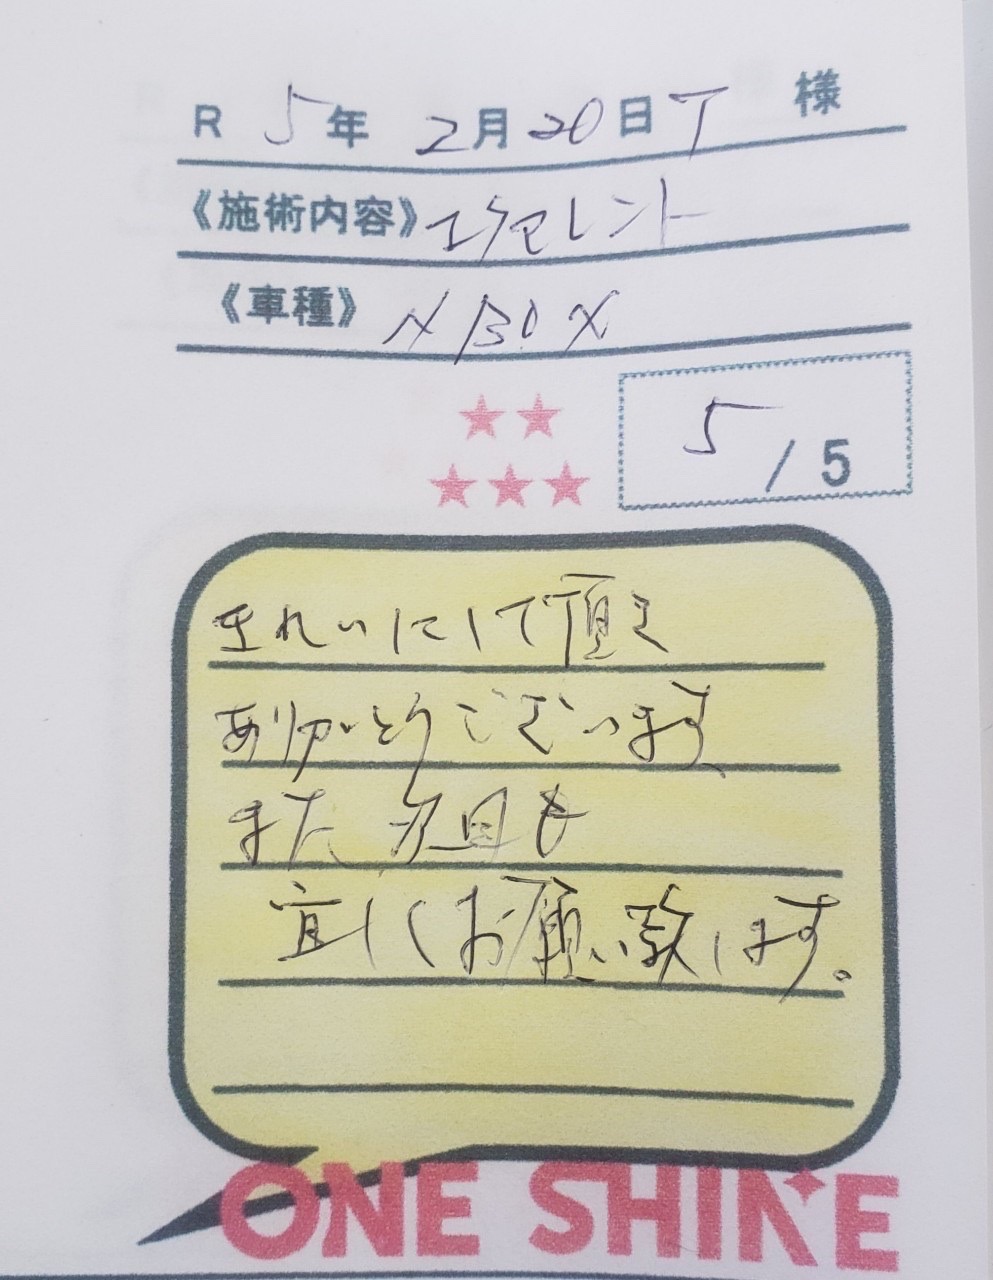 R 5年 2月20日 T 様
《施術内容》エクセレント
《車種》N BOX
5 / 5
きれいにして頂き
ありがとうございます。
また 次回も
宜しくお願い致します。
ONE SHINE